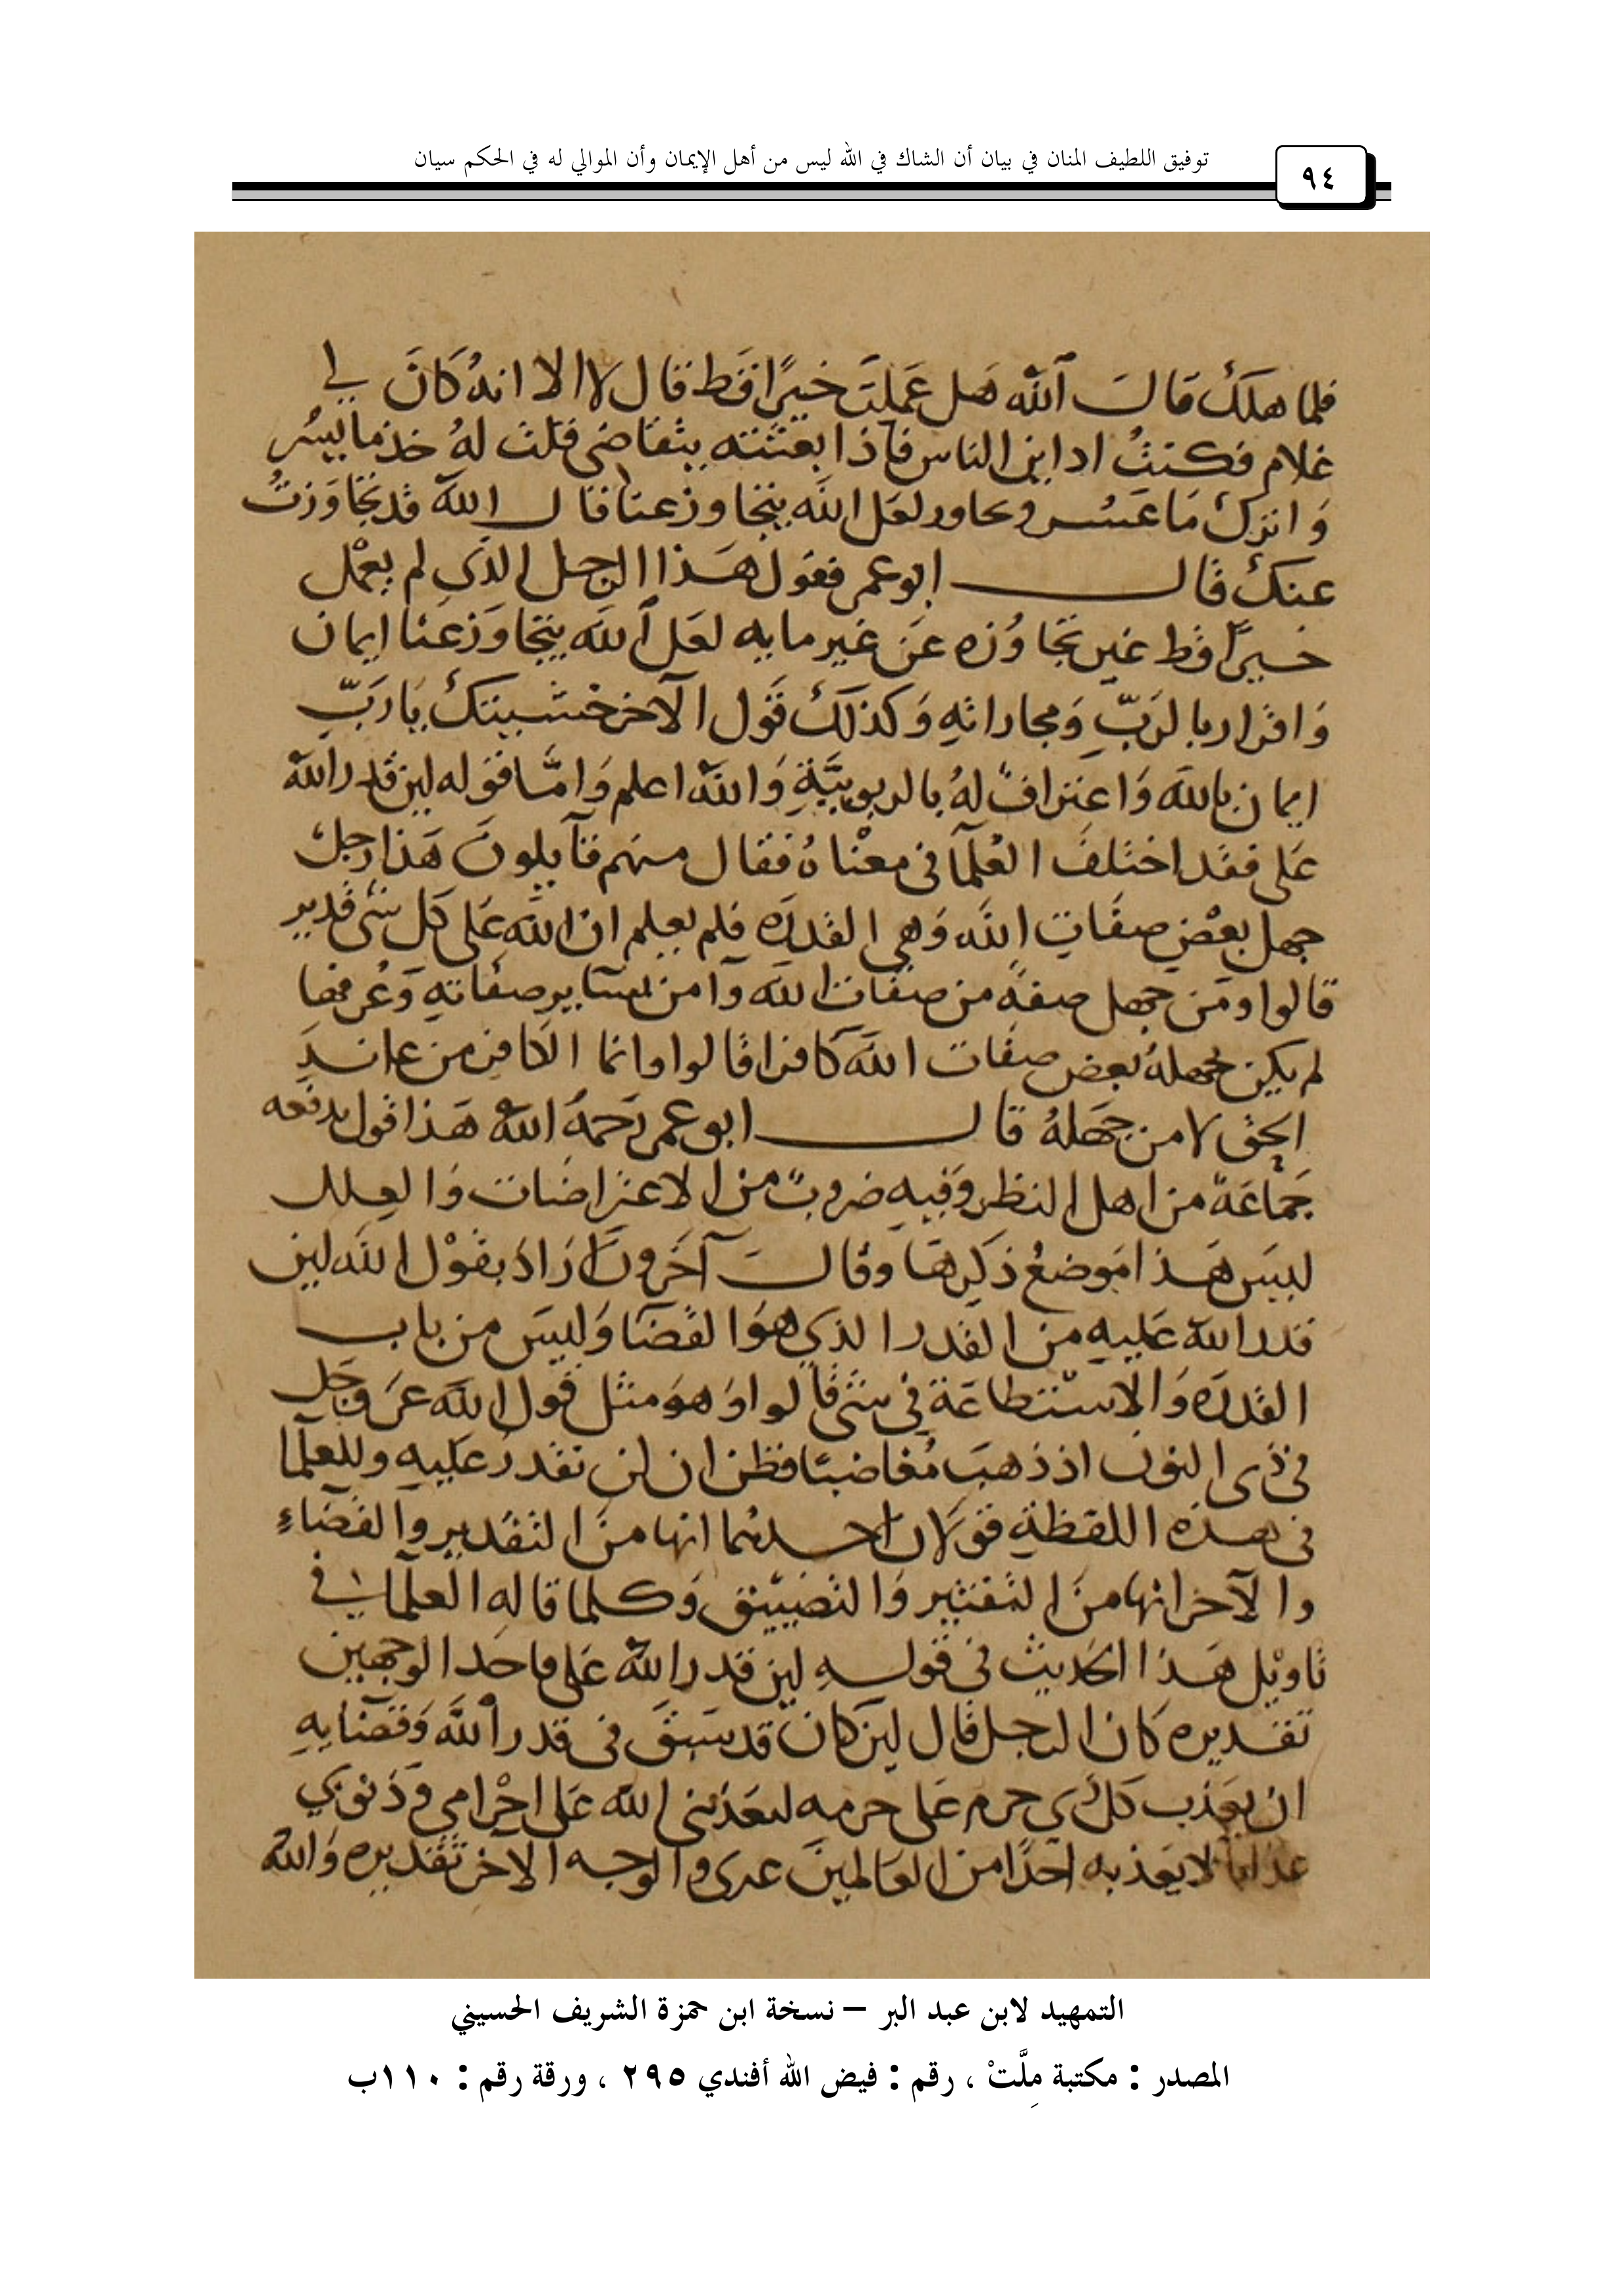 توفيق اللطيف المنان في بيان أن الشاك في الله ليس من أهل الإيمان وأن الموالي له في الحكم سيان
٩٤
فلما هلك قال الله هل عملت خيرًا قط قال لا الا انه كان لي
غلام فكنت اداين الناس فاذا بعثته يتقاضى قلت له خذ ما يسر
واترك ما عسر وتجاوز لعل الله يتجاوز عنا قال الله قد تجاوزت
عنك قال ابو عمر فقول هذا الرجل الذي لم يعمل
خيرًا قط غير تجاوزه عن غير مايه لعل الله يتجاوز عنا ايمان
واقرار بالرب ومجازاته وكذلك قول الآخر خشيتك يا رب
ايمان بالله واعتراف له بالربوبية والله اعلم وامّا قوله لين قدر الله
على فقد اختلف العلمآ في معناه فقال منهم قآيلون هذا رجل
جهل بعض صفات الله وهي القدره فلم يعلم ان الله على كل شى قدير
قالوا ومن جهل صفة من صفات الله وآمن بسآير صفاته وعرفها
لم يكن بجهله بعض صفات الله كافرا قالوا وانما الكافر من عاند
الحق لا من جهله قال ابو عمر رحمه الله هذا قول يدفعه
جماعة من اهل النظر وفيه ضروب من الاعتراضات والعلل
ليس هذا موضع ذكرها وقال آخرون اراد بقول الله لين
قدر الله عليه من القدر الذي هو القضآ وليس من باب
القدره والاستطاعة في شى قالوا وهو مثل قول الله عز وجل
في ذى النون اذ ذهب مغاضبًا فظن ان لن نقدر عليه وللعلمآ
في هذه اللفظة قولان احدهما انها من التقدير والقضاء
والآخر انها من التقتير والتضييق وكلما قاله العلمآ في
تاويل هذا الحديث في قوله لين قدر الله على فاحد الوجهين
تقديره كان الرجل قال لين كان قد سبق في قدر الله وقضايه
ان يعذب كل ذي جرم على جرمه ليعذبنى الله على اجرامي وذنوبي
عذابا لا يعذبه احدًا من العالمين غيرى والوجه الاخر تقديره والله
التمهيد لابن عبد البر – نسخة ابن حمزة الشريف الحسيني
المصدر : مكتبة مِلَّتْ ، رقم : فيض الله أفندي ٢٩٥ ، ورقة رقم : ١١٠ب